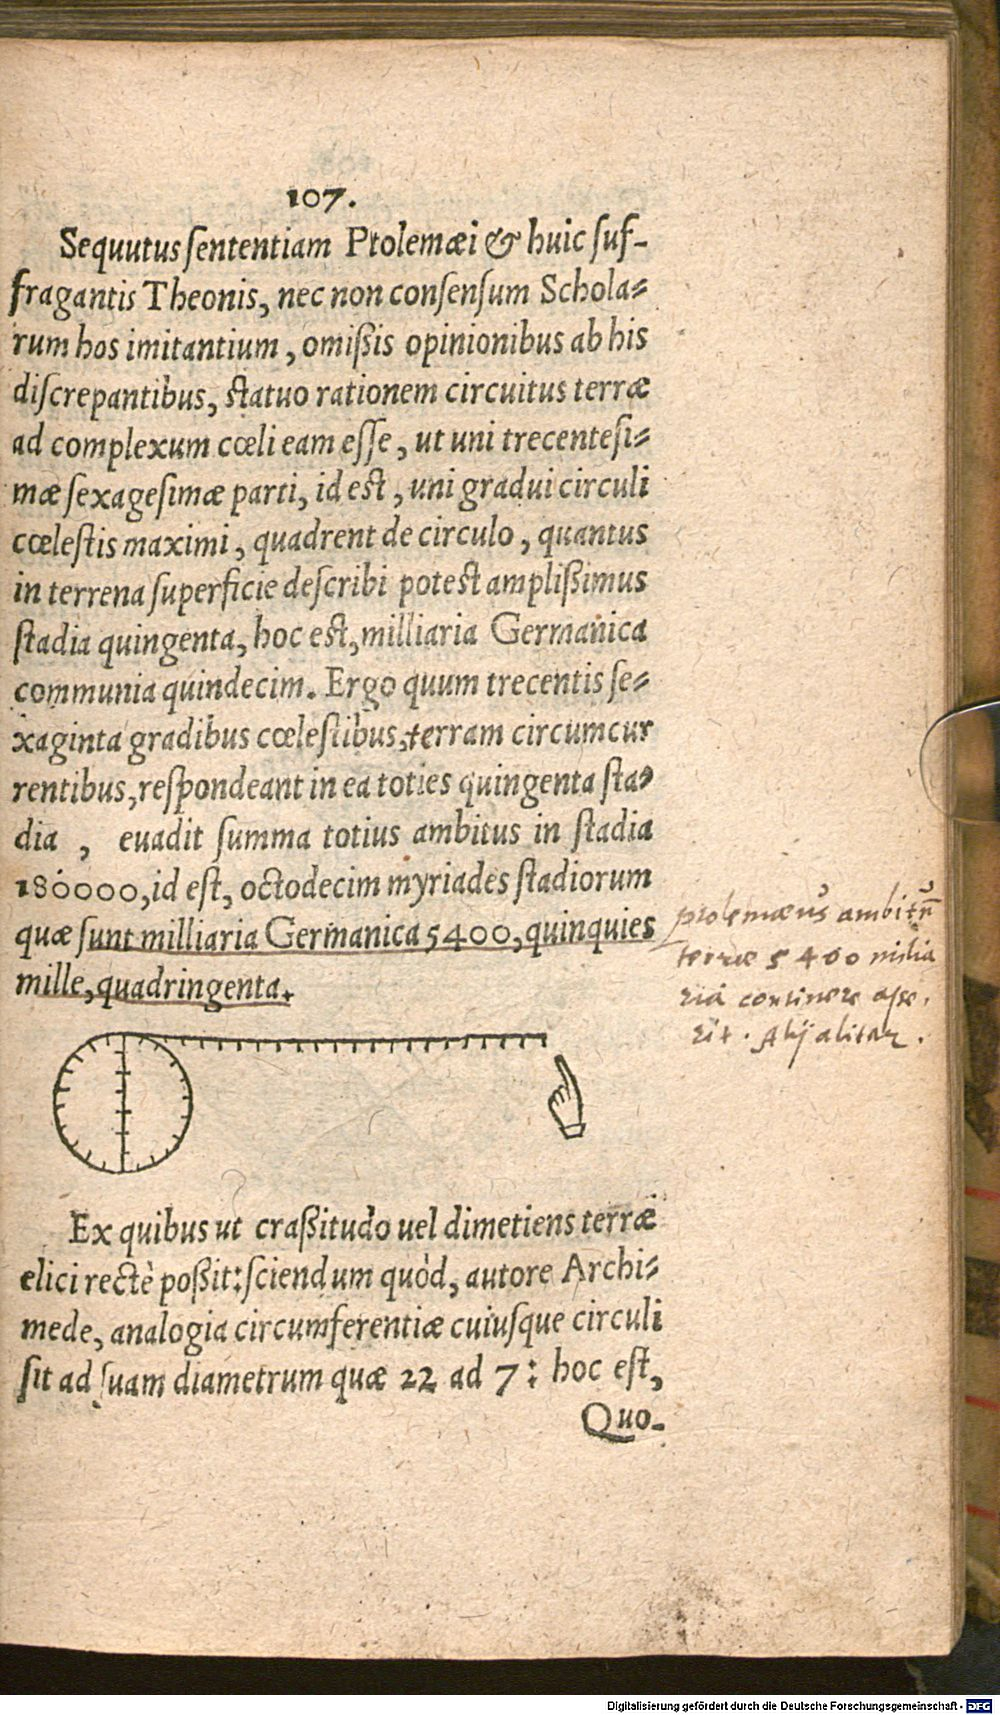 107.
Sequutus sententiam Ptolemæi & huic ſuf-
fragantis Theonis, nec non conſenſum Schola-
rum hos imitantium, omißis opinionibus ab his
diſcrepantibus, ſtatuo rationem circuitus terræ
ad complexum cœli eam eſſe, ut uni trecenteſi-
mæ ſexageſimæ parti, id eſt, uni gradui circuli
cœleſtis maximi, quadrent de circulo, quantus
in terrena ſuperficie deſcribi poteſt amplißimus
ſtadia quingenta, hoc eſt, milliaria Germanica
communia quindecim. Ergo quum trecentis ſe-
xaginta gradibus cœleſtibus, terram circumcur
rentibus, reſpondeant in ea toties quingenta ſta-
dia , euadit ſumma totius ambitus in ſtadia
180000, id eſt, octodecim myriades ſtadiorum
quæ ſunt milliaria Germanica 5400, quinquies
mille, quadringenta.
ptolemæus ambitū
terræ 5400 milia
ria continere asse.
rit. Alij aliter.
Ex quibus ut craßitudo uel dimetiens terræ
elici rectè poßit: ſciendum quòd, autore Archi-
mede, analogia circumferentiæ cuiuſque circuli
ſit ad ſuam diametrum quæ 22 ad 7: hoc eſt,
Quo-
Digitalisierung gefördert durch die Deutsche Forschungsgemeinschaft - DFG